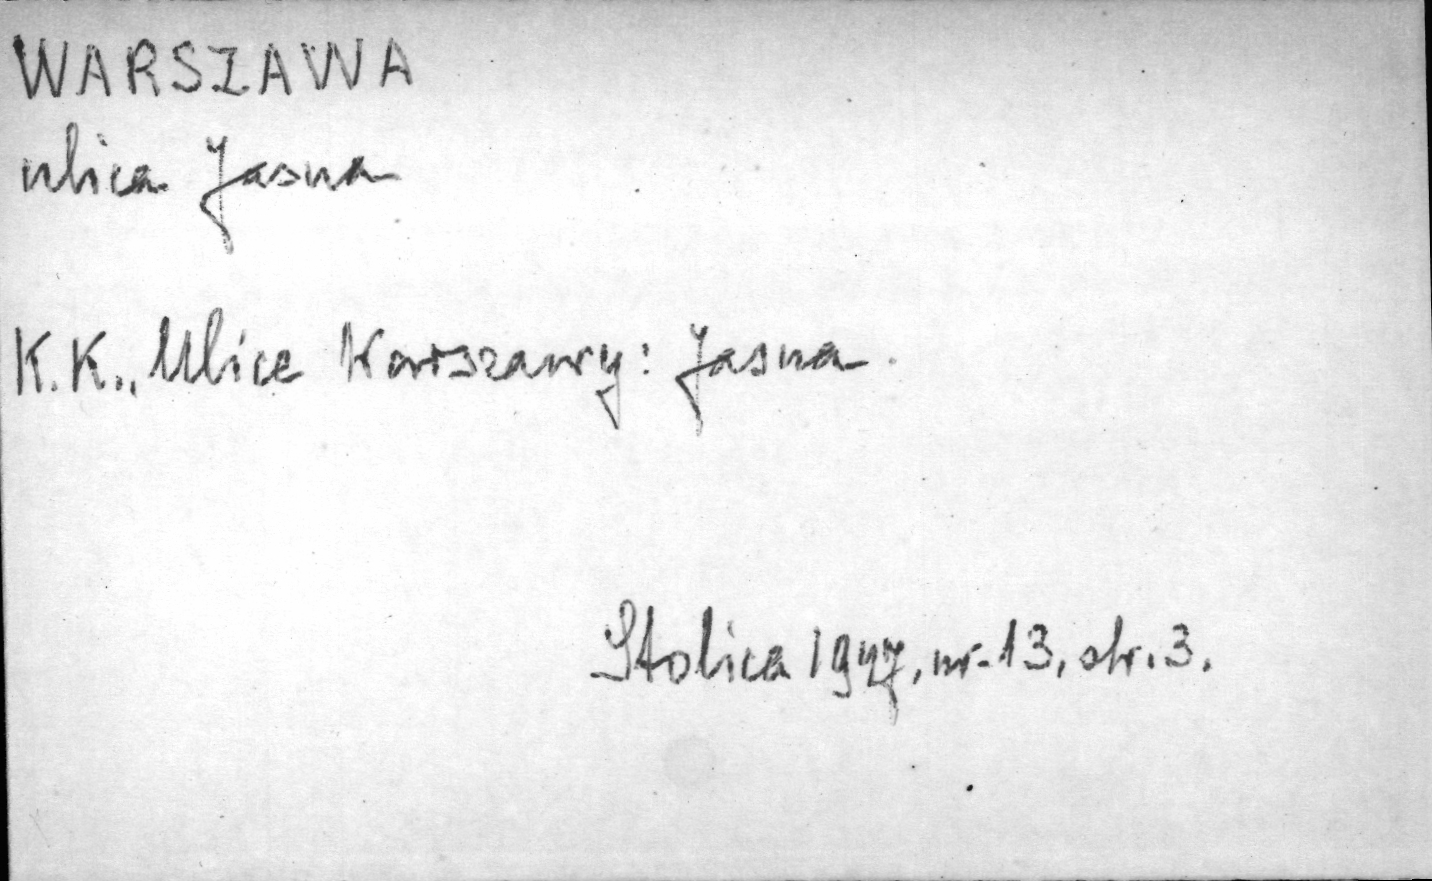 WARSZAWA
ulica Jasna
K.K., Ulice Warszawy: Jasna.
Stolica 1947, nr. 13, str. 3.